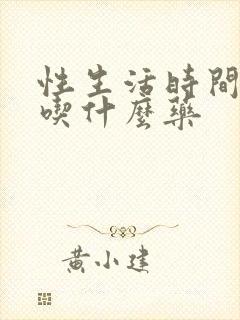 性生活時間
喫什麼藥
黃小建